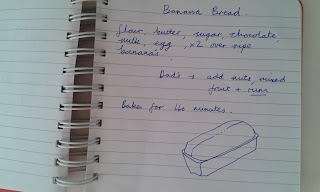 Banana Bread.
flour, butter, sugar, chocolate,
milk, egg, x2 over ripe
bananas.
Dad's → add nuts, mixed
fruit + rum
Bake for 40 minutes.